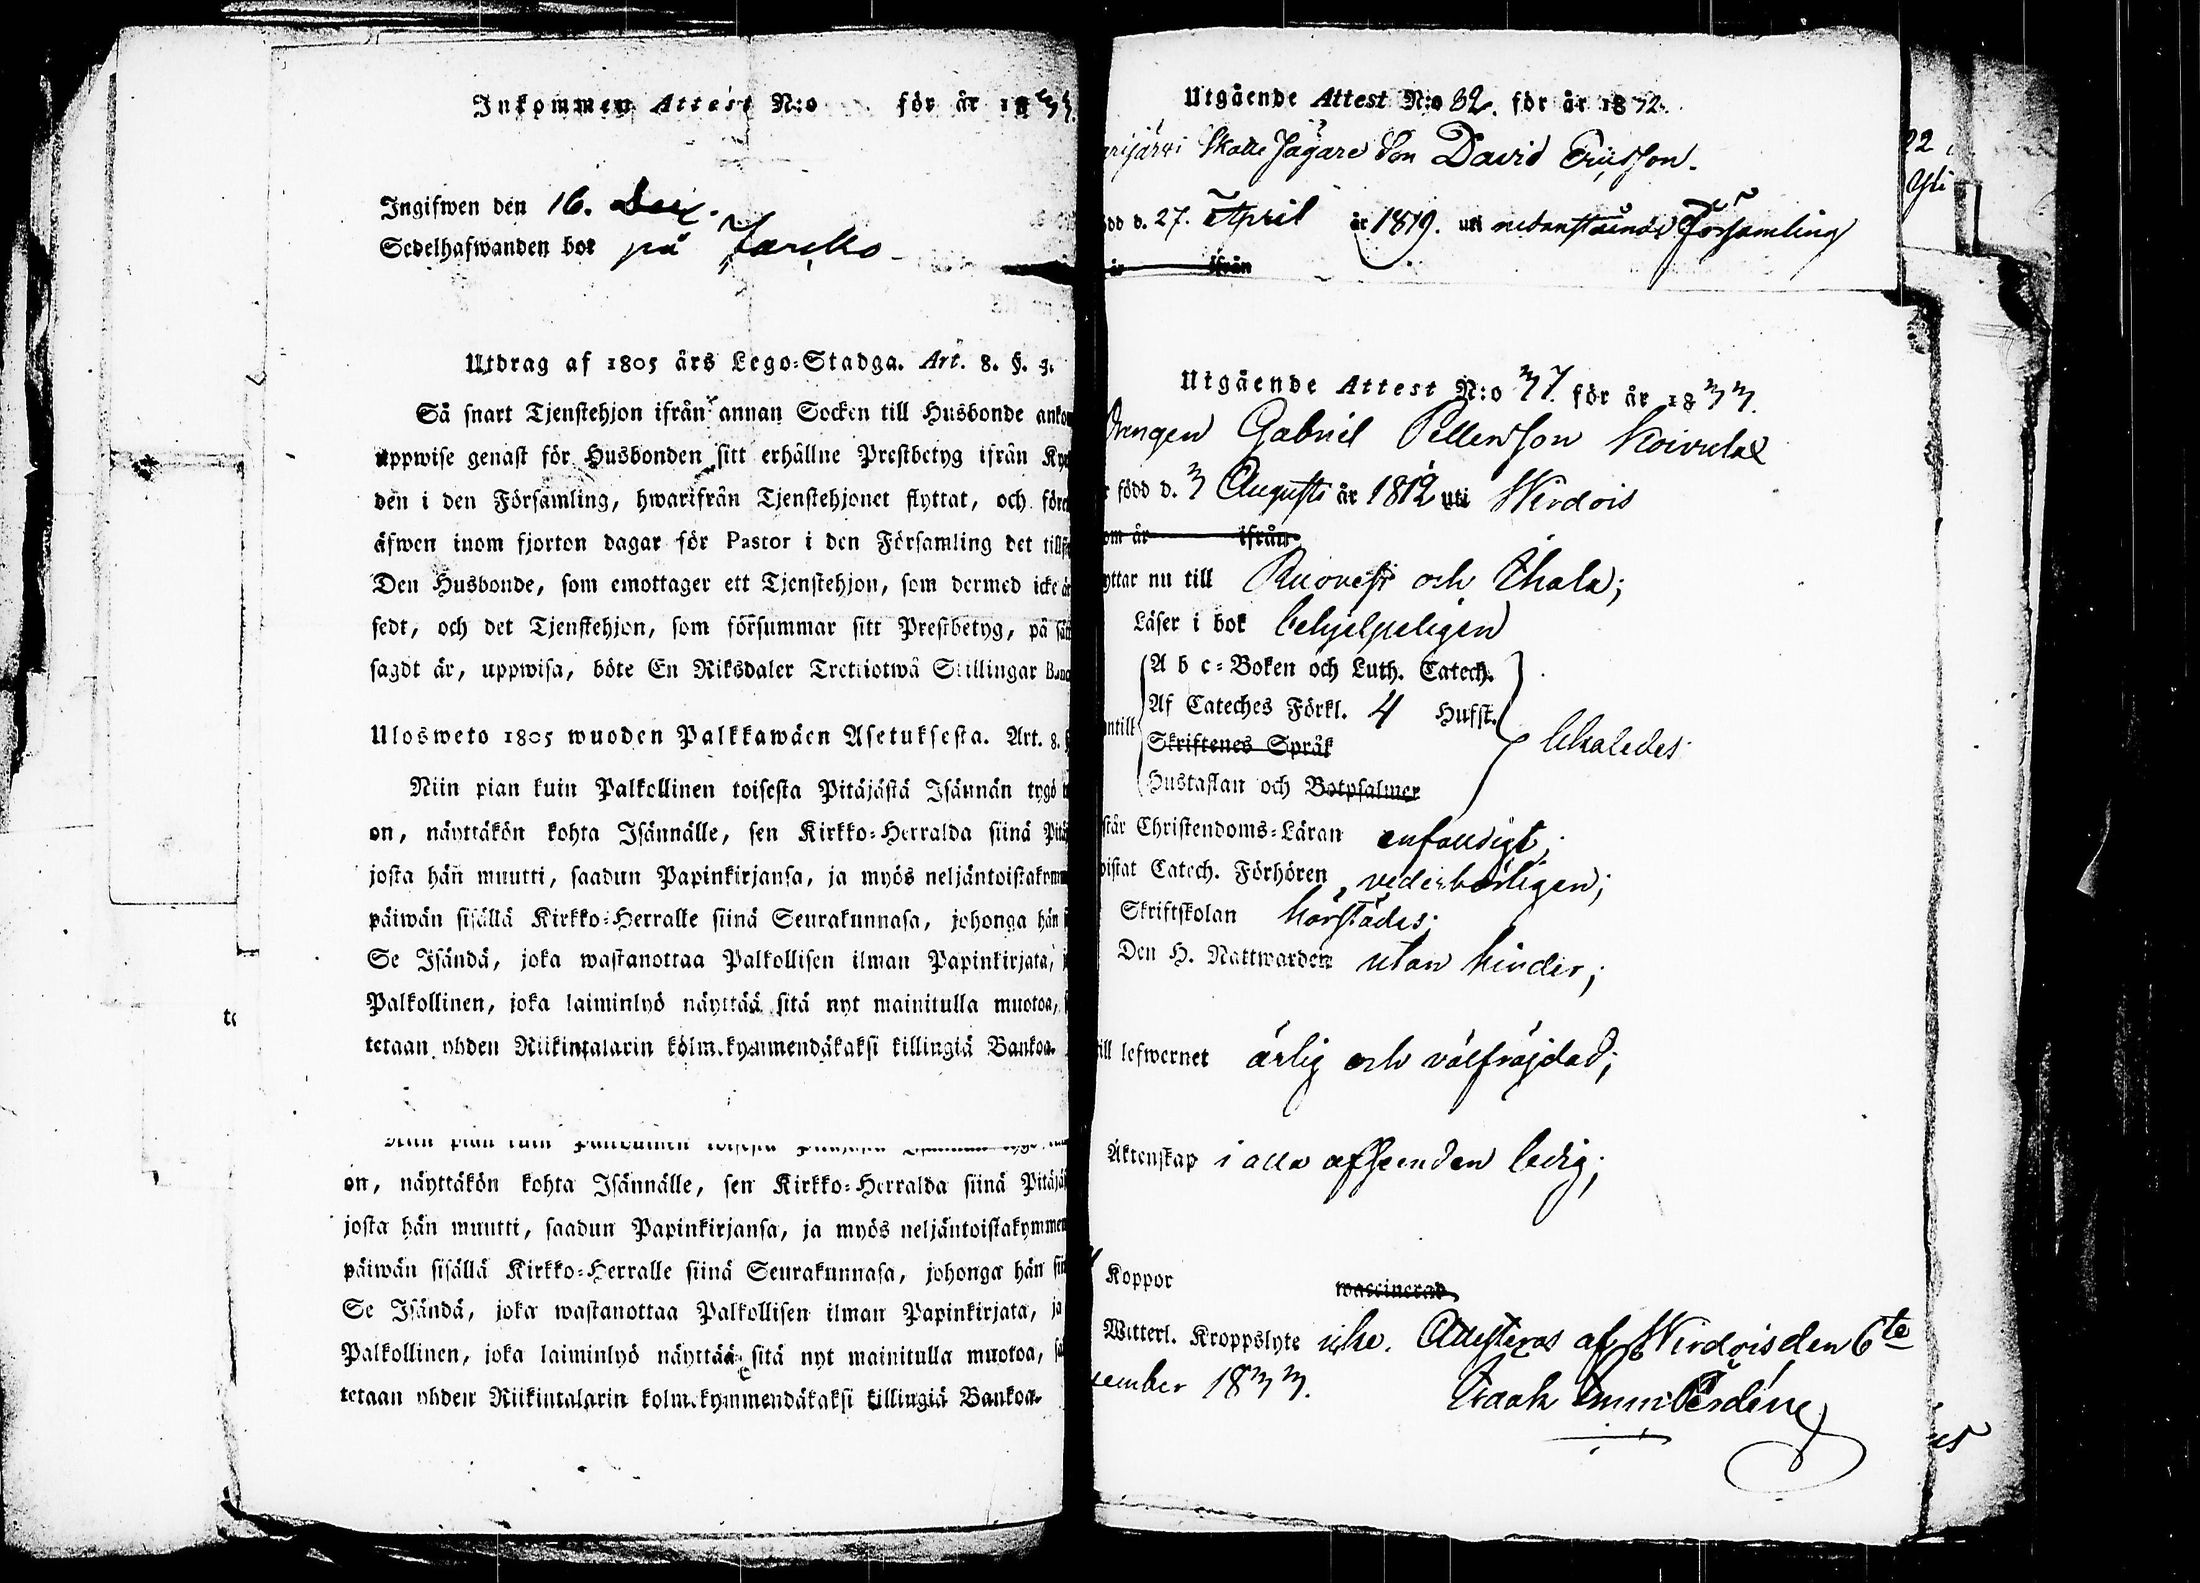 Inkommen Attest N:o för år 1833.
Ingifwen den 16. Dec.
Sedelhafwanden bor på Jarcko
Utdrag af 1805 års Lego-Stadga. Art. 8. §. 3.
Så snart Tjenstehjon ifrån annan Socken till Husbonde anko
uppwise genast för Husbonden sitt erhållne Prestbetyg ifrån Ky
den i den Församling, hwarifrån Tjenstehjonet flyttat, och före
äfwen inom fjorton dagar för Pastor i den Församling det till
Den Husbonde, som emottager ett Tjenstehjon, som dermed icke är
sedt, och det Tjenstehjon, som försummar sitt Prestbetyg, på sä
sagdt är, uppwisa, böte En Riksdaler Trettiotwå Skillingar Banc
Ulosweto 1805 wuoden Palkkawäen Asetuksesta. Art. 8. §
Niin pian kuin Palkollinen toisesta Pitäjästä Isännän tygö
on, näyttäkön kohta Isännälle, sen Kirkko-Herralda siinä Pitä
josta hän muutti, saadun Papinkirjansa, ja myös neljäntoistakymm
päiwän sisällä Kirkko-Herralle siinä Seurakunnasa, johonga hän
Se Isändä, joka wastanottaa Palkollisen ilman Papinkirjata,
Palkollinen, joka laiminlyö näyttää sitä nyt mainitulla muotoa,
tetaan yhden Riikintalarin kolm.kymmendäkaksi killingiä Bankoa.
on, näyttäkön kohta Isännälle, sen Kirkko-Herralda siinä Pitäjä
josta hän muutti, saadun Papinkirjansa, ja myös neljäntoistakymmen
päiwän sisällä Kirkko-Herralle siinä Seurakunnasa, johonga hän sii
Se Isändä, joka wastanottaa Palkollisen ilman Papinkirjata, ja
Palkollinen, joka laiminlyö näyttää sitä nyt mainitulla muotoa, sa
tetaan yhden Riikintalarin kolm.kymmendäkaksi killingiä Bankoa.
Utgående Attest N:o 32. för år 1832.
arijärvi Skatte Jägare Son David Ericsson.
ödd d. 27. April år 1819. uti nedanstående Församling
är ifrån
Utgående Attest N:o 37. för år 1833.
Drengen Gabriel Pettersson Koivula
r född d. 3 Augusti år 1812 uti Wirdois
om är ifrån
yttar nu till Ruovesi och Ihala;
Läser i bok behjelpeligen
A b c-Boken och Luth. Catech.
Af Cateches Förkl. 4 Hufst.
antill Skriftenes Språk likaledes
Hustaflan och Botpsalmer
står Christendoms-Läran enfaldigt;
bistat Catech. Förhören vederbörligen;
Skriftskolan härstädes;
Den H. Nattwarden utan hinder;
ill lefwernet ärlig och välfräjdad;
Äktenskap i alla afseenden ledig;
Koppor waccinerad
Witterl. Kroppslyte icke. Attesteras af Wirdois den 6te
cember 1833.
Isaak Imm: Perdén
22
Yli
te